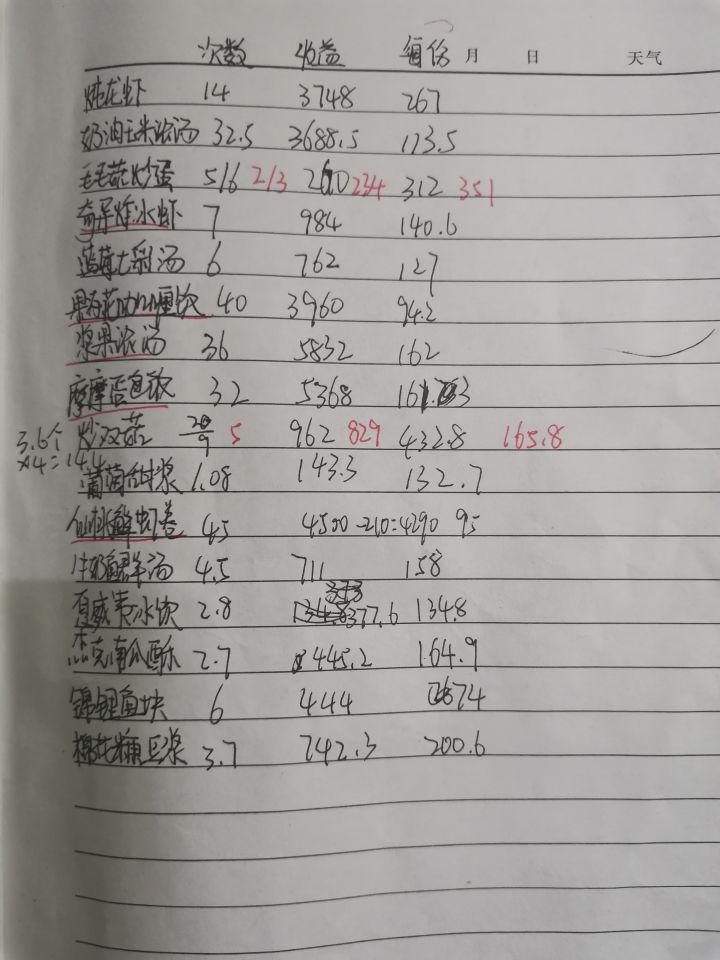 次数 收益 每份 月 日 天气
炖龙虾 14 3748 267
奶油玉米浓汤 32.5 3688.5 113.5
毛毛菇炒蛋 5/6 2/3 260 234 312 351
奇异炸冰虾 7 984 140.6
蓝莓七彩汤 6 762 127
咖喱饮 40 3960 94.2
浆果浓汤 36 5832 162
摩摩蛋白饮 32 5368
炒双菇 20/9 5 962 829 432.8 165.8
3.6个
×4=14.4
葡萄甜浆 1.08 143.3 132.7
仙桃鲜虾卷 45 4500-210=4290 95
牛奶鱼羊汤 4.5 711 158
夏威夷冰饮 2.8 377.6 134.8
杰克南瓜酥 2.7 445.2 164.9
锦鲤鱼块 6 444 74
棉花糖豆浆 3.7 742.3 200.6